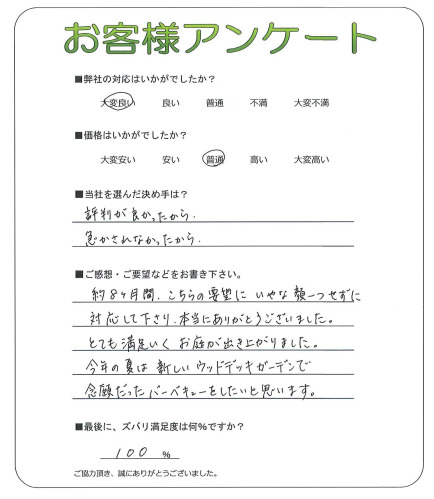 お客様アンケート
■弊社の対応はいかがでしたか？
大変良い　良い　普通　不満　大変不満
■価格はいかがでしたか？
大変安い　安い　普通　高い　大変高い
■当社を選んだ決め手は？
評判が良かったから．
急かされなかったから．
■ご感想・ご要望などをお書き下さい。
約8ヶ月間．こちらの要望に いやな顔一つせずに
対応して下さり．本当にありがとうございました。
とても満足いく お庭が出き上がりました。
今年の夏は 新しい ウッドデッキガーデンで
念願だったバーベキューをしたいと思います。
■最後に、ズバリ満足度は何％ですか？
100 ％
ご協力頂き、誠にありがとうございました。